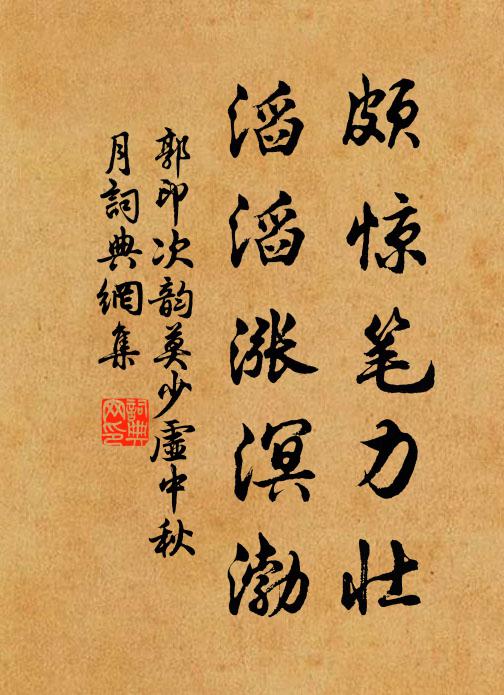 颇惊笔力壮
滔滔涨溟渤
郭印次韵莫少虚中秋
月詞典網集
詞典
网印